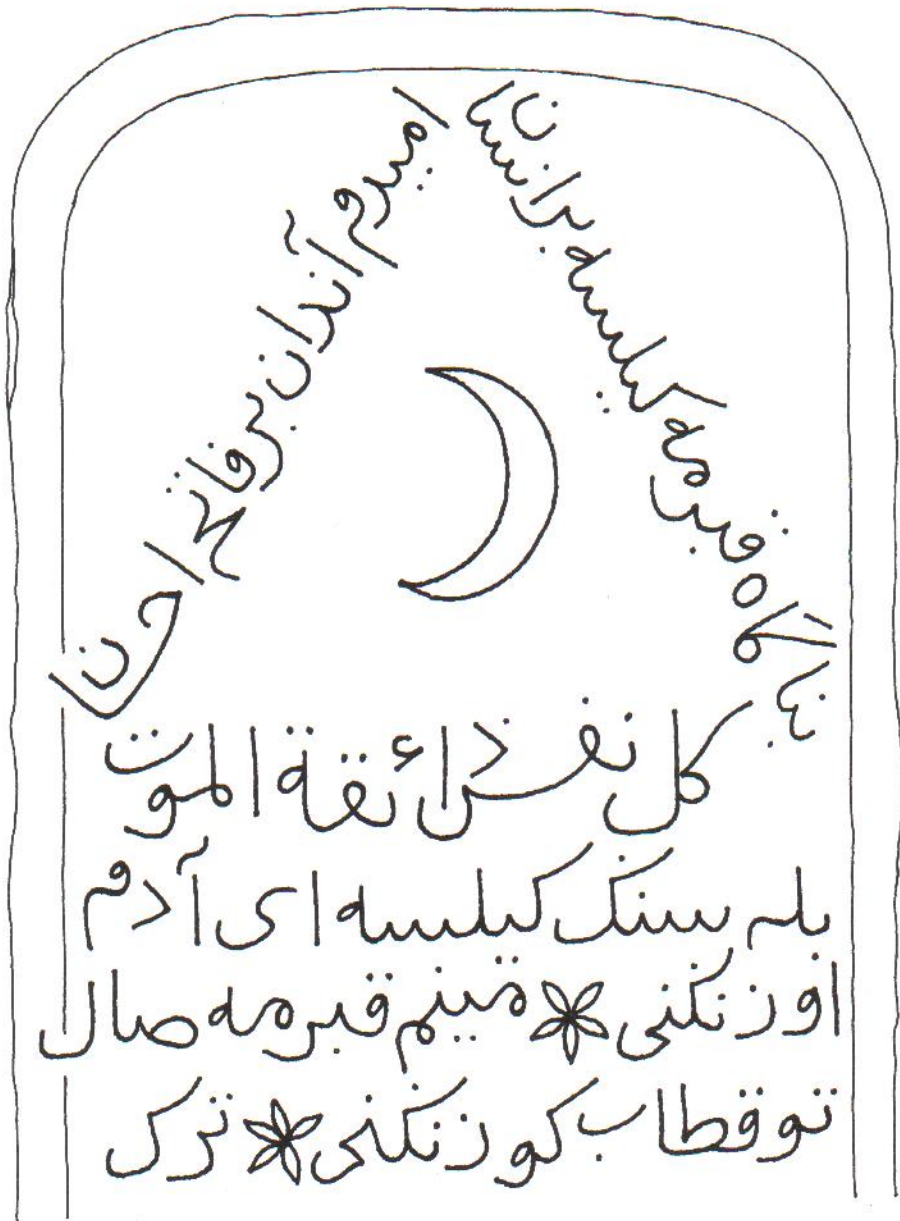 بناكاه قبرمه كیلیسه بر انسان
امیدم آندان بر فاتحه احسان
كل نفس ذائقة الموت
بله سنك كیلسه ای آدم
اوزنكنی مینم قبرمه صال
توقطاب كوزنكنی ترك